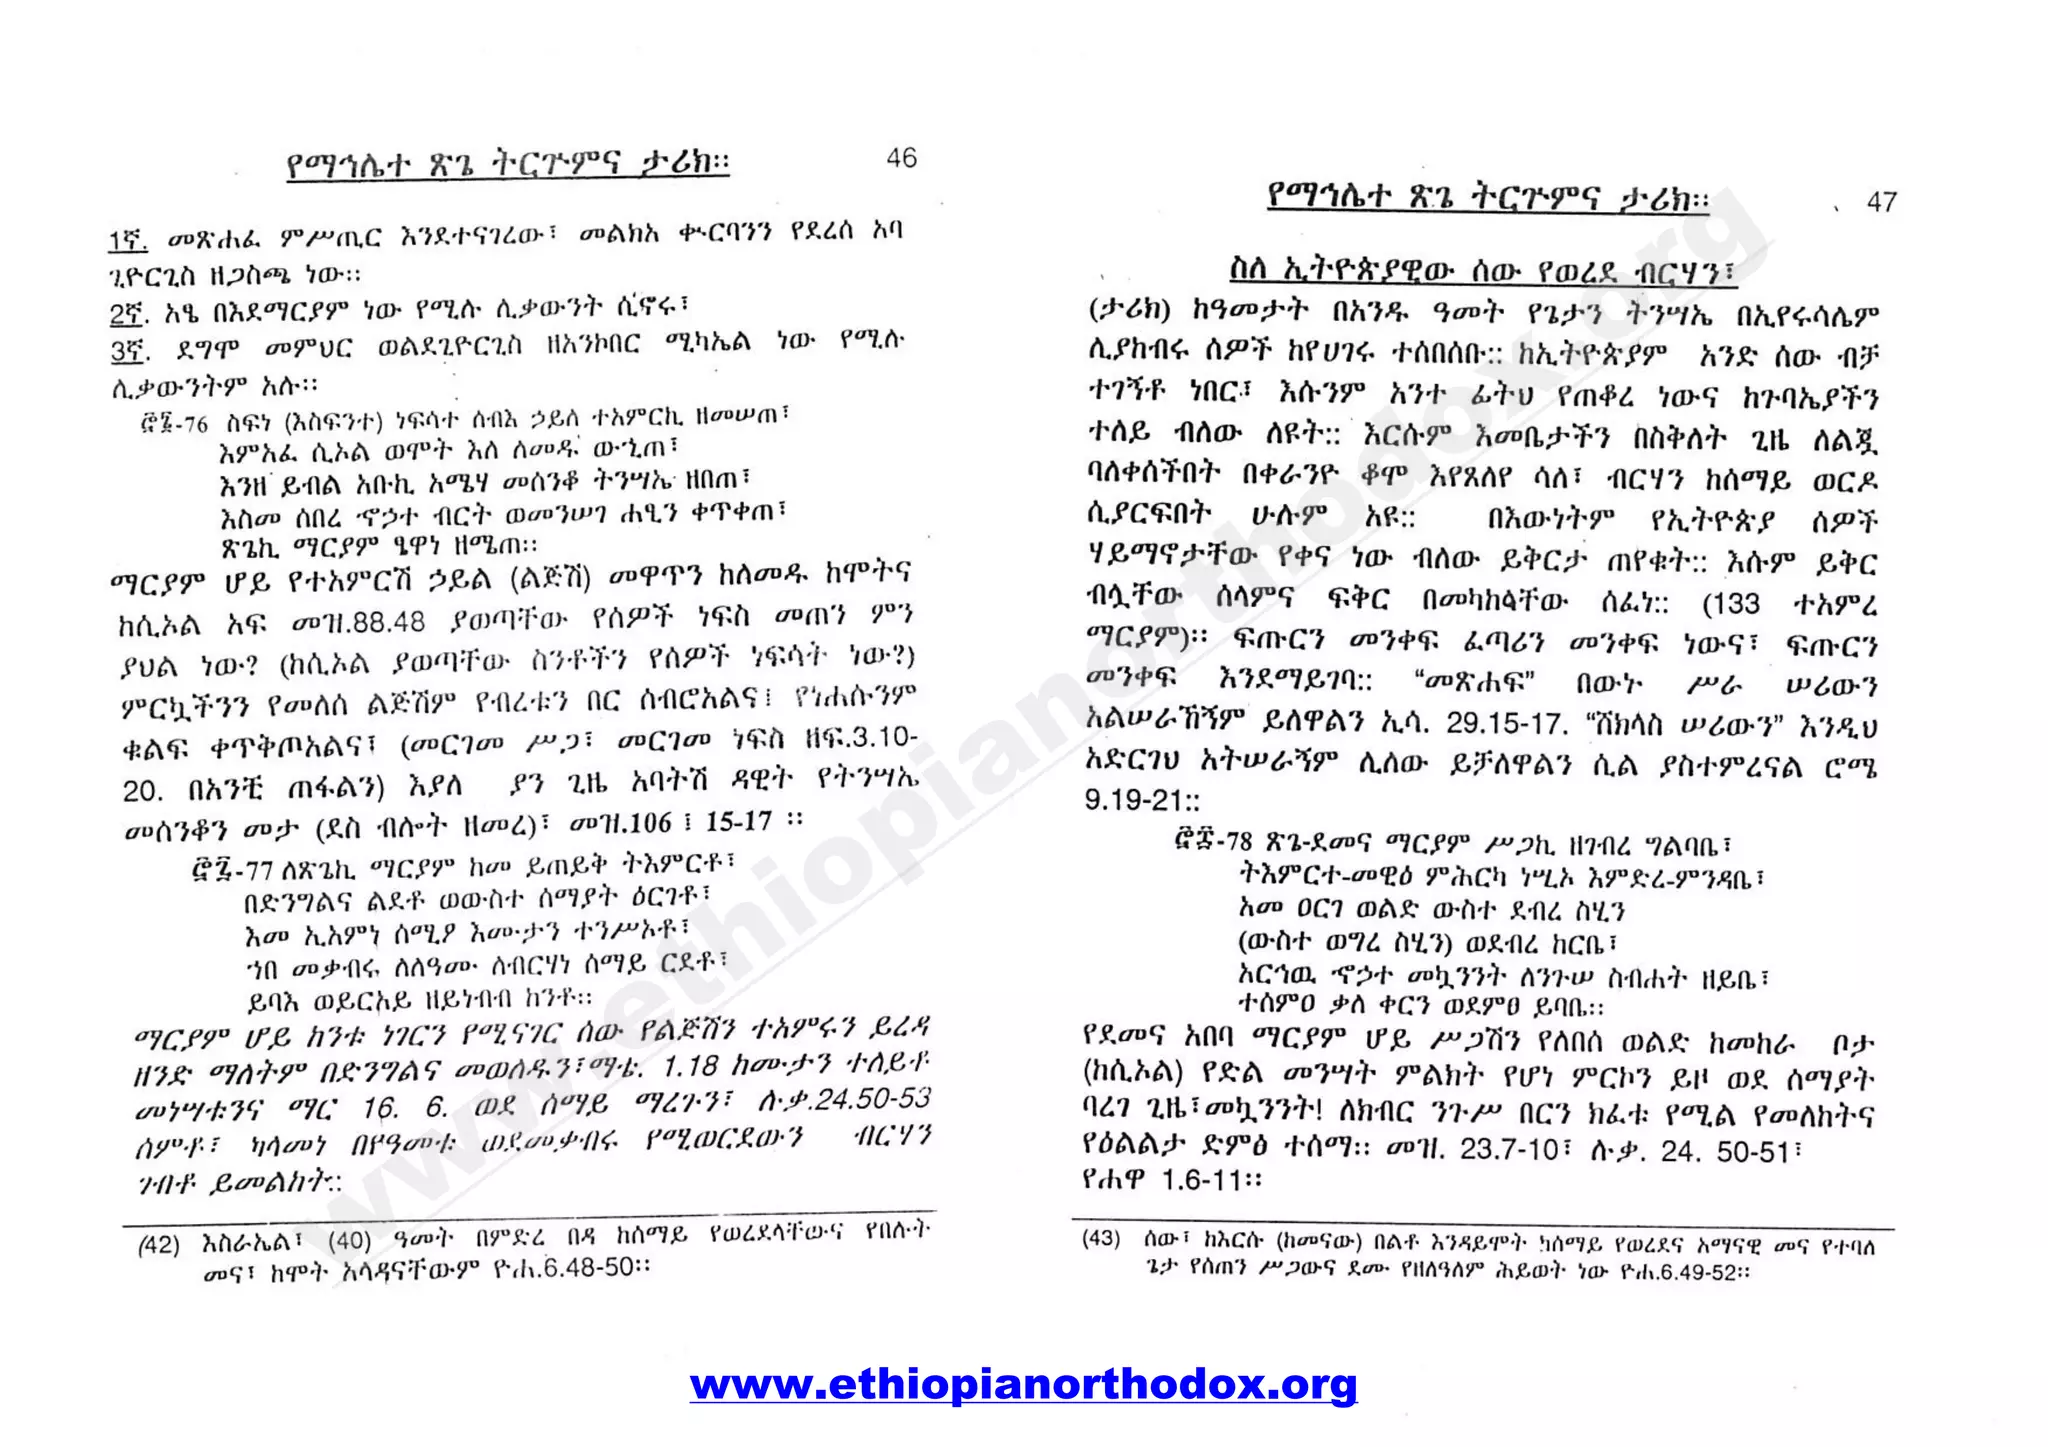 የማኅሌተ ጽጌ ትርጕምና ታሪክ። 46
1ኛ. መጽሐፈ ምሥጢር እንደተናገረው፣ መልክአ ቍርባንን የደረሰ አባ
ጊዮርጊስ ዘጋስጫ ነው።
2ኛ. አፄ በእደማርያም ነው የሚሉ ሊቃውንት ሲኖሩ፣
3ኛ. ደግሞ መምህር ወልደጊዮርጊስ ዘአንኮበር ሚካኤል ነው የሚሉ
ሊቃውንትም አሉ።
፸፮-76 ስፍነ (እስፍንተ) ነፍሳተ ሰብእ ኃይለ ተአምርኪ ዘመሠጠ፣
እምአፈ ሲኦል ወሞት እለ ለመዱ ውኂጠ፣
እንዘ ይብል አቡኪ አሜሃ መሰንቆ ትንሣኤ ዘበጠ፣
እስመ ሰበረ ኆኃተ ብርት ወመንሠገ ሐፂን ቀጥቀጠ፣
ጽጌኪ ማርያም ፄዋነ ዘሜጠ።
ማርያም ሆይ የተአምርሽ ኃይል (ልጅሽ) መዋጥን ከለመዱ ከሞትና
ከሲኦል አፍ መዝ.88.48 ያወጣቸው የሰዎች ነፍስ መጠን ምን
ያህል ነው? (ከሲኦል ያወጣቸው ስንቶችን የሰዎች ነፍሳት ነው?)
ምርኳችንን የመለሰ ልጅሽም የብረቱን በር ሰብሮአልና፤ የነሐሱንም
ቁልፍ ቀጥቅጦአልና፣ (መርገመ ሥጋ፣ መርገመ ነፍስ ዘፍ.3.10-
20. በአንቺ ጠፋልን) እያለ ያን ጊዜ አባትሽ ዳዊት የትንሣኤ
መሰንቆን መታ (ደስ ብሎት ዘመረ)፣ መዝ.106 ፤ 15-17 ።
፸፯-77 ለጽጌኪ ማርያም ከመ ይጠይቅ ትእምርቶ፣
በድንግልና ልደቶ ወውስተ ሰማያት ዕርገቶ፣
እመ ኢአምነ ሰሚዖ እሙታን ተንሥኦቶ፣
ኀበ መቃብሩ ለለዓሙ ለብርሃነ ሰማይ ርደቶ፣
ይባእ ወይርአይ ዘይነብብ ከንቶ።
ማርያም ሆይ ከንቱ ነገርን የሚናገር ሰው የልጅሽን ተአምሩን ይረዳ
ዘንድ ማለትም በድንግልና መወለዱን፣ማቴ. 1.18 ከሙታን ተለይቶ
መነሣቱንና ማር 16. 6. ወደ ሰማይ ማረጉን፣ ሉቃ.24.50-53
ሰምቶ፣ ካላመነ በየዓመቱ ወደመቃብሩ የሚወርደውን ብርሃን
ገብቶ ይመልከት።
(42) እስራኤል፣ (40) ዓመት በምድረ በዳ ከሰማይ የወረደላቸውና የበሉት
መና፣ ከሞት አላዳናቸውም ዮሐ.6.48-50።
የማኅሌተ ጽጌ ትርጕምና ታሪክ። 47
ስለ ኢትዮጵያዊው ሰው የወረደ ብርሃን፣
(ታሪክ) ከዓመታት በአንዱ ዓመት የጌታን ትንሣኤ በኢየሩሳሌም
ሊያከብሩ ሰዎች ከየሀገሩ ተሰበሰቡ። ከኢትዮጵያም አንድ ሰው ብቻ
ተገኝቶ ነበር፤ እሱንም አንተ ፊትህ የጠቆረ ነውና ከጉባኤያችን
ተለይ ብለው ለዩት። እርሱም እመቤታችን በስቅለት ጊዜ ለልጇ
ባለቀሰችበት በቀራንዮ ቆሞ እየጸለየ ሳለ፣ ብርሃን ከሰማይ ወርዶ
ሲያርፍበት ሁሉም አዩ። በእውነትም የኢትዮጵያ ሰዎች
ሃይማኖታቸው የቀና ነው ብለው ይቅርታ ጠየቁት። እሱም ይቅር
ብሏቸው ሰላምና ፍቅር በመካከላቸው ሰፈነ። (133 ተአምረ
ማርያም)። ፍጡርን መንቀፍ ፈጣሪን መንቀፍ ነውና፣ ፍጡርን
መንቀፍ እንደማይገባ። “መጽሐፍ” በውኑ ሥራ ሠሪውን
አልሠራኸኝም ይለዋልን ኢሳ. 29.15-17. “ሸክላስ ሠሪውን” እንዲህ
አድርገህ አትሠራኝም ሊለው ይቻለዋልን ሲል ያስተምረናል ሮሜ
9.19-21።
፸፰-78 ጽጌ-ደመና ማርያም ሥጋኪ ዘገብረ ግልባቤ፣
ትእምርተ-መዊዕ ምሕርካ ነሢኦ እምድረ-ምንዳቤ፣
አመ ዐርገ ወልድ ውስተ ደብረ ስሂን
(ውስተ ወግረ ስሂን) ወደብረ ከርቤ፣
አርኅዉ ኆኃተ መኳንንት ለንጉሠ ስብሐት ዘይቤ፣
ተሰምዐ ቃለ ቀርን ወደምፀ ይባቤ።
የደመና አበባ ማርያም ሆይ ሥጋሽን የለበሰ ወልድ ከመከራ ቦታ
(ከሲኦል) የድል መንሣት ምልክት የሆነ ምርኮን ይዞ ወደ ሰማያት
ባረገ ጊዜ፣መኳንንት! ለክብር ንጉሥ በርን ክፈቱ የሚል የመለከትና
የዕልልታ ድምፅ ተሰማ። መዝ. 23.7-10፣ ሉቃ. 24. 50-51፣
የሐዋ 1.6-11።
(43) ሰው፣ ከእርሱ (ከመናው) በልቶ እንዳይሞት ካሰማይ የወረደና አማናዊ መና የተባለ
ጌታ የሰጠን ሥጋውና ደሙ የዘለዓለም ሕይወት ነው ዮሐ.6.49-52።
www.ethiopianorthodox.org
www.ethiopianorthodox.org